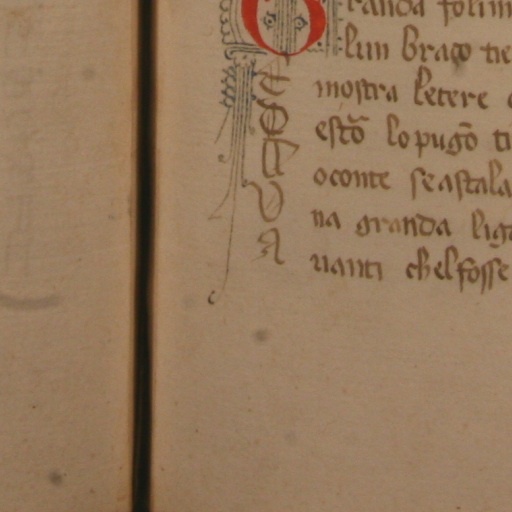 randa folim
lun braço tie
mostra letere
estõ lo pugõ ti
oconte seastala
na granda liga
uanti chelfosse